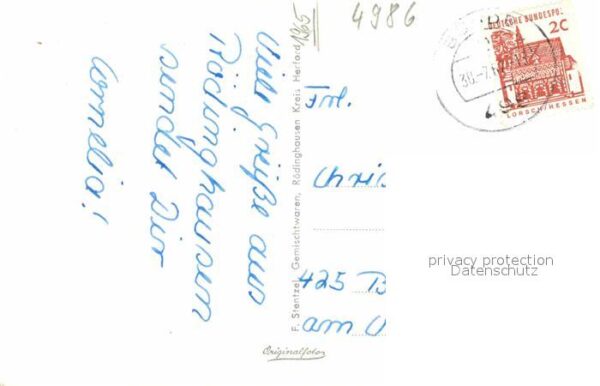 Viele Grüße aus
Rödinghausen
sendet Dir
Cornelia!
F. Stentzel, Gemischtwaren, Rödinghausen Kreis Herford
Originalfoto
125
4986
DEUTSCHE BUNDESPOST
20
LORSCH/HESSEN
Frl.
Chri
425 B
am
privacy protection
Datenschutz